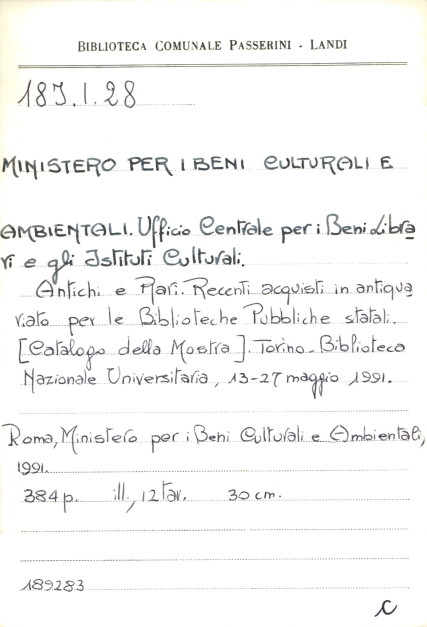 BIBLIOTECA COMUNALE PASSERINI - LANDI
187.I.28
MINISTERO PER I BENI CULTURALI E
AMBIENTALI. Ufficio Centrale per i Beni Libra
ri e gli Istituti Culturali.
Antichi e Rari. Recenti acquisti in antiqua
riato per le Biblioteche Pubbliche statali.
[Catalogo della Mostra]. Torino-Biblioteca
Nazionale Universitaria, 13-27 maggio 1991.
Roma, Ministero per i Beni Culturali e Ambientali,
1991.
384 p. ill., 12 tav. 30 cm.
189283
C